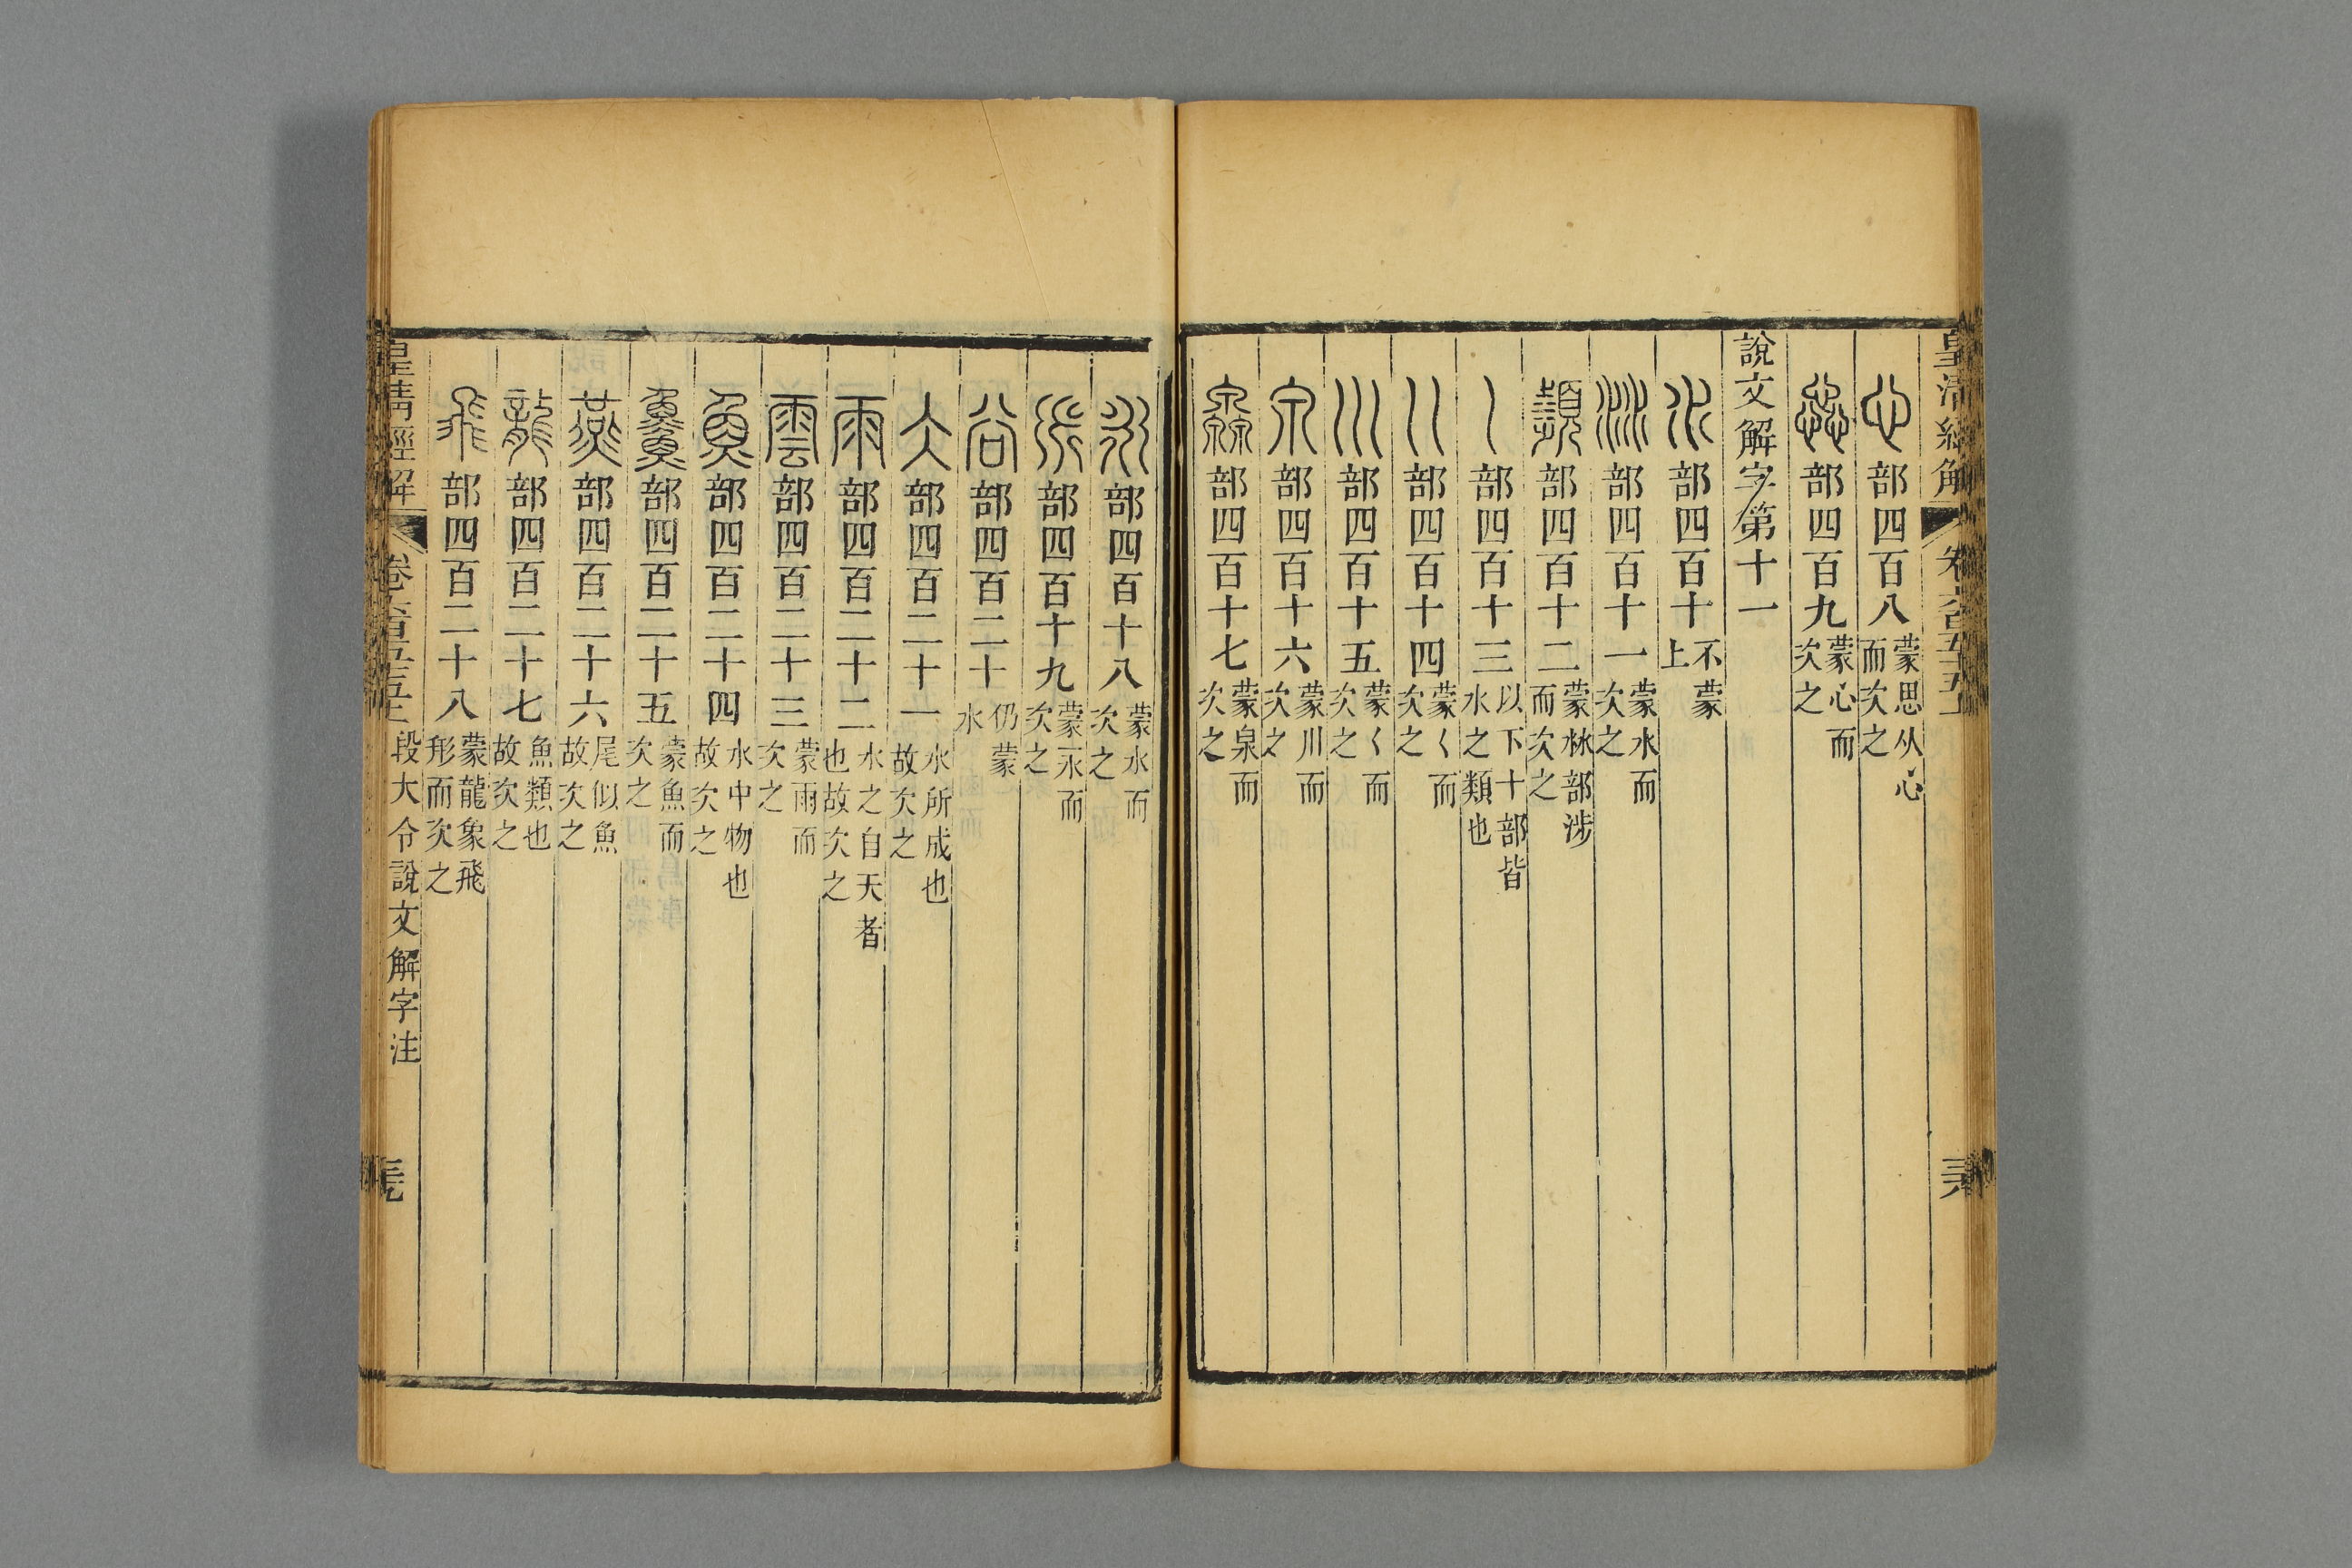 皇清經解
心部四百八蒙思从心而次之
惢部四百九蒙心而次之
說文解字第十一
水部四百十不蒙上
沝部四百十一蒙水而次之
頻部四百十二蒙沝部涉而次之
𡿨部四百十三以下十部皆水之類也
巜部四百十四蒙𡿨而次之
川部四百十五蒙𡿨而次之
泉部四百十六蒙川而次之
灥部四百十七蒙泉而次之
永部四百十八蒙水而次之
𠂢部四百十九蒙永而次之
谷部四百二十仍蒙水
仌部四百二十一水所成也故次之
雨部四百二十二水之自天者也故次之
雲部四百二十三蒙雨而次之
魚部四百二十四水中物也故次之
𩺰部四百二十五蒙魚而次之
燕部四百二十六尾似魚故次之
龍部四百二十七魚類也故次之
飛部四百二十八蒙龍象飛形而次之
皇清經解 段大令說文解字注